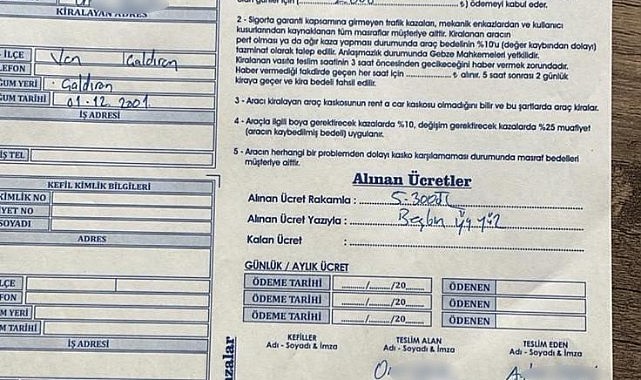 KİRALAYAN ADRES
İLÇE Van Çaldıran
LEFON
ĞUM YERİ Çaldıran
ĞUM TARİHİ 01.12.2001
İŞ ADRESİ
İŞ TEL
KEFİL KİMLİK BİLGİLERİ
KİMLİK NO
YET NO
SOYADI
ADRES
LÇE
FON
M YERİ
M TARİHİ
İŞ ADRESİ
₺) ödemeyi kabul eder.
2 - Sigorta garanti kapsamına girmeyen trafik kazaları, mekanik enkazlardan ve kullanıcı
kusurlarından kaynaklanan tüm masraflar müşteriye aittir. Kiralanan aracın
pert olması ya da ağır kaza yapması durumunda araç bedelinin %10'u (değer kaybından dolayı)
tazminat olarak talep edilir. Anlaşmazlık durumunda Gebze Mahkemeleri yetkilidir.
Kiralanan vasıta teslim saatinin 3 saat öncesinden gecikeceğini haber vermek zorundadır.
Haber vermediği takdirde geçen her saat için .......... ₺ alınır. 5 saat sonrası 2 günlük
kiraya geçer ve kira bedeli tahsil edilir.
3 - Aracı kiralayan araç kaskosunun rent a car kaskosu olmadığını bilir ve bu şartlarda araç kiralar.
4 - Araçla ilgili boya gerektirecek kazalarda %10, değişim gerektirecek kazalarda %25 muafiyet
(aracın kaybedilmiş bedeli) uygulanır.
5 - Aracın herhangi bir problemden dolayı kasko karşılamaması durumunda masraf bedelleri
müşteriye aittir.
Alınan Ücretler
Alınan Ücret Rakamla : 5.300₺
Alınan Ücret Yazıyla : Beşbin Üç yüz
Kalan Ücret :
GÜNLÜK / AYLIK ÜCRET
ÖDEME TARİHİ ......../......../20........ ÖDENEN
ÖDEME TARİHİ ......../......../20........ ÖDENEN
ÖDEME TARİHİ ......../......../20........ ÖDENEN
KEFİLLER TESLİM ALAN TESLİM EDEN
Adı - Soyadı & İmza Adı - Soyadı & İmza Adı - Soyadı & İmza
azalar